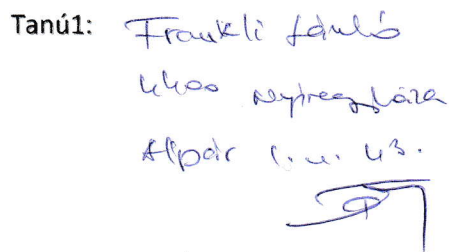 Tanú1: Frankli
4400 Nyíregyháza
Alpár 43.